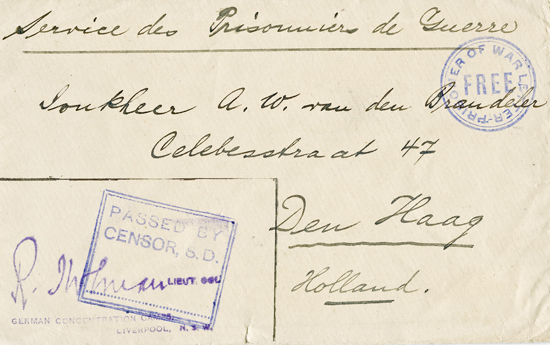 Service des Prisonniers de Guerre
PRISONER OF WAR LETTER
FREE
Jonkheer A. W. van den Brandeler
Celebesstraat 47
Den Haag
Holland.
PASSED BY
CENSOR, S. D.
R. LIEUT. COL.
GERMAN CONCENTRATION CAMP
LIVERPOOL, N. S. W.